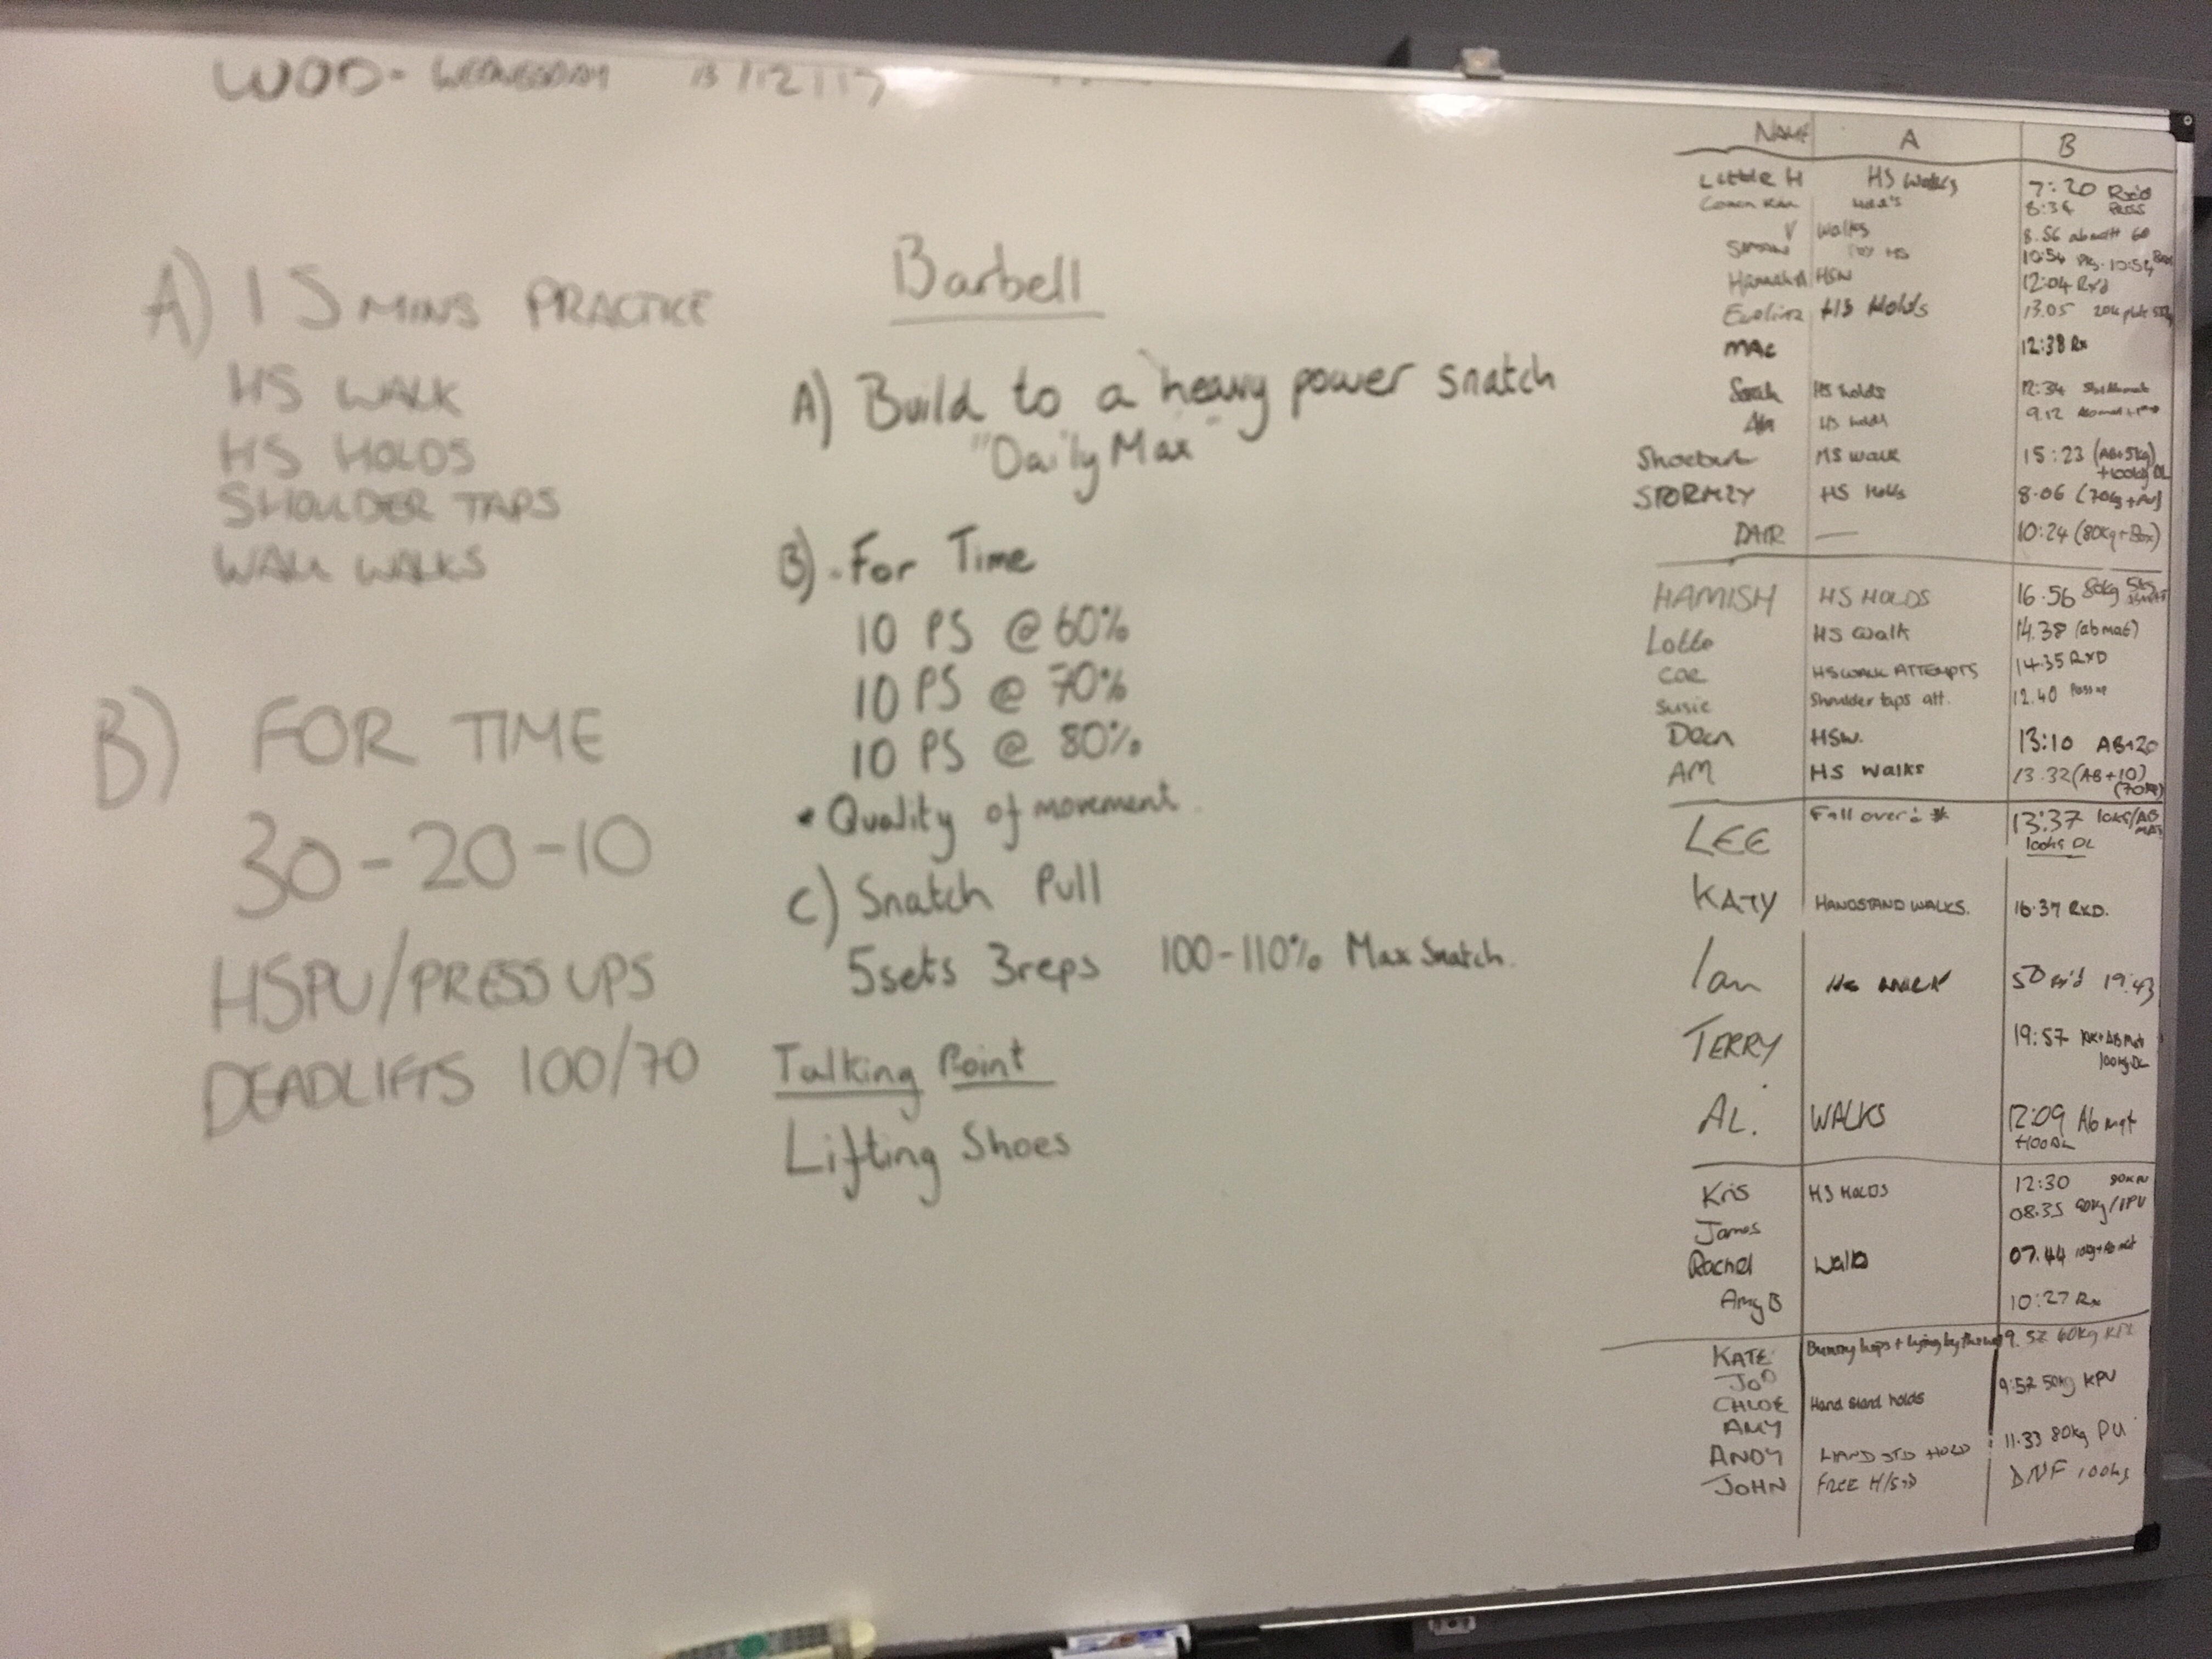 WOD - WEDNESDAY 13/12/17
A) 15 MINS PRACTICE
HS WALK
HS HOLDS
SHOULDER TAPS
WALL WALKS
B) FOR TIME
30-20-10
HSPU/PRESS UPS
DEADLIFTS 100/70
Barbell
A) Build to a heavy power snatch
"Daily Max"
B) - For Time
10 PS @ 60%
10 PS @ 70%
10 PS @ 80%
• Quality of movement
C) Snatch Pull
5sets 3reps 100-110% Max Snatch.
Talking Point
Lifting Shoes
NAME A B
Little H HS Walks 7:20 Rx'd
8:34 PRESS
V Walks 8.56 abmatt 60
Simon HS 10:54
Hannah HSW 12:04 Rxd
Evelina HS Holds 13.05
MAC 12:38 Rx
Sarah HS holds 12:34
HS holds 9.12
Shoebert HS walk 15:23 (AB+5kg)
+100kg DL
STORMZY HS Holds 8.06
DAIR — 10:24 (80kg+Box)
HAMISH HS HOLDS 16.56 80kg
Lotte HS Walk 14.38 (abmat)
COE HSWALK ATTEMPTS 14.35 RXD
Susie Shoulder taps att. 12.40
Dean HSW. 13:10 AB+20
AM HS Walks 13.32 (AB+10)
(70kg)
LEE Fall over 13:37 10KG/AB MAT
100KG DL
KATY HANDSTAND WALKS. 16.37 RXD.
Ian HS WALK 19:43
TERRY 19:57
100kg DL
AL. WALKS 12:09 Ab mat
+100DL
Kris HS HOLDS 12:30
James 08.35
Rachel Walk 07.44
Amy B 10:27 Rx
KATE Bunny hops + lying by the 9.52 60kg KPU
JO
CHLOE Hand stand holds 9:52 50kg KPU
AMY
ANDY HAND STD HOLD 11.33 80kg PU
JOHN FREE H/STD DNF 100kg